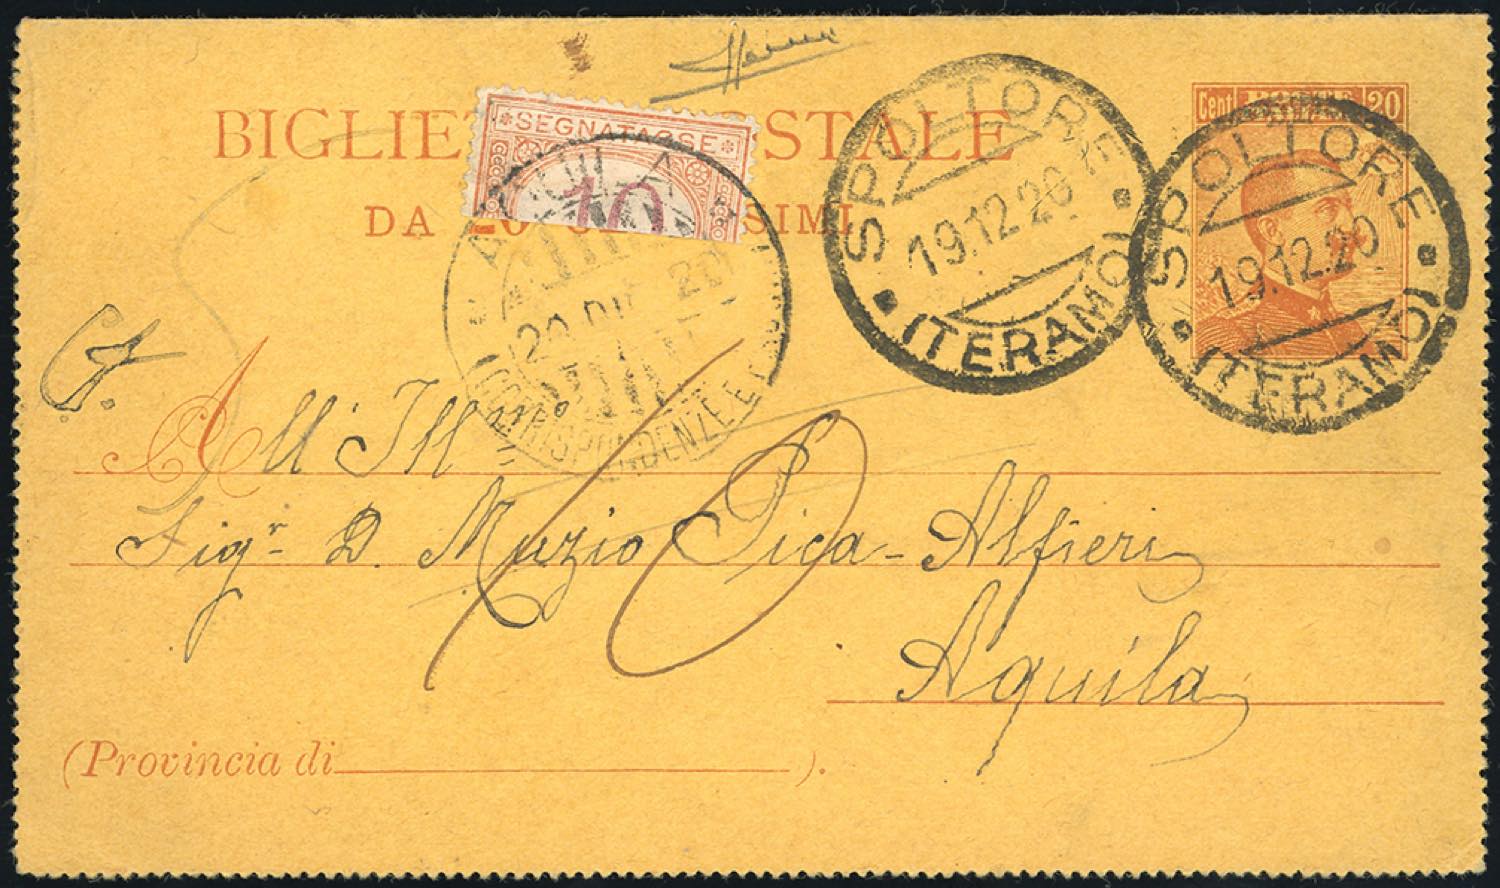 Cent. POSTE 20
BIGLIE STALE
SEGNATASSE
10
DA 20 SIMI
SPOLTORE
19.12.20
(TERAMO)
SPOLTORE
19.12.20
(TERAMO)
20 DIC 20
CORRISPONDENZE E
All' Ill mo
Sigr D. Muzio Pica - Alfieri
10
Aquila
(Provincia di ).